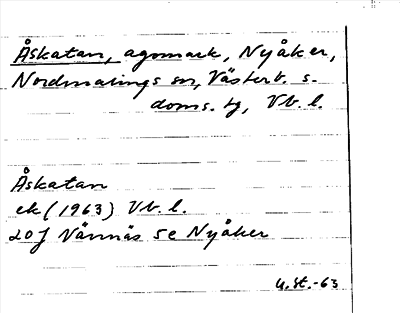 Åskatan, agomark, Nyåker,
Nordmalings sn, Västerb. s.
doms. tg, Vb. l.
Åskatan
ek (1963) Vb. l.
20J Vännäs 5e Nyåker
G. St. -63